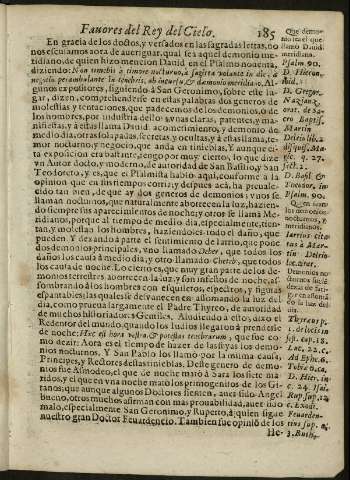 Fauores del Rey del Cielo. 185
En gracia de los doctos, y versados en las sagradas letras, no
nos escusamos aora de aueriguar, qual sea aquel demonio me-
ridiano, de quien hizo mencion Dauid en el Psalmo nouenta,
diziendo: Non timebis à timore nocturno, à sagitta volante in die, à
negotio perambulante in tenebris, ab incursu, & dæmonio meridiano. Al-
gunos expositores, siguiendo à San Geronimo, sobre este lu-
gar, dizen, comprehenderse en estas palabras dos generos de
molestias y tentaciones, que padecemos de los demonios, o de
los hombres, por industria dellos: vnas claras, patentes, y ma-
nifiestas, y à estas llama Dauid acometimiento, y demonio de
medio dia: otras solapadas, secretas, y ocultas, y à estas llama, te-
mor nocturno, y negocio, que anda en tinieblas. Y aunque es-
ta exposicion era bastante, tengo por muy cierto, lo que dize
vn Autor docto, y moderno, de autoridad de San Basilio, y San
Teodoreto, y es, que el Psalmista hablò aqui, conforme a la
opinion que en sus tiempos corria, y despues acà, ha preuale-
cido tan bien, de que ay dos generos de demonios; vnos se
llaman nocturnos, que naturalmente aborrecen la luz, hazien-
do siempre sus aparecimientos de noche; y otros se llama Me-
ridianos, porque al tiempo de medio dia, especialmente, tien-
tan, y molestan los hombres, haziendoles todo el daño, que
pueden. Y dexando à parte el sentimiento de Iarreo, que pone
dos demonios principales, vno llamado Deber, que todos los
daños los causa à medio dia, y otro llamado Cheteb, que todos
los causa de noche. Lo cierto es, que muy gran parte de los de-
monios terrestres aborrecen la luz, y son infestos de noche, as-
sombrando à los hombres con esquitos, espectros, y figuras
espantables; las quales se desvanecen en assomando la luz del
dia, como prueua largamente el Padre Thyreo, de autoridad
de muchos historiadores Gentiles. Aludiendo à esto, dixo el
Redentor del mundo, quando los Iudios llegaron à prenderle
de noche: Hæc est hora vestra, & potestas tenebrarum, que fue co-
mo dezir: Aora es el tiempo de hazer de las suyas los demo-
nios nocturnos. Y San Pablo los llamò por la misma causa,
Principes, y Rectores destas tinieblas. Deste genero de demo-
nios fue Asmodeo, el que de noche matò à Sara los siete ma-
ridos, y el que en vna noche matò los primogenitos de los Gi-
tanos; que aunque algunos Doctores sienten, auer sido Angel
bueno, otros muchos afirman con mas prouabilidad, auer sido
malo, especialmente San Geronimo, y Ruperto, à quien sigue
nuestro gran Doctor Feuardencio. Tambien fue opinió de los
He-
Que demo-
nio sea el que
llamò Dauid
meridiano.
Psalm. 90.
D. Hieron.
ibid.
D. Gregor.
Nazianz.
orat. de Sa-
cro Baptis.
Martin
Delrio lib. 2
disquis. Ma-
gic. q. 27.
sect. 2.
D. Basil. &
Teodor. in
Psalm. 90.
Que es sentir
los demonios
nocturnos, y
meridianos.
Iarreus cita-
tus à Mar-
tin Delrio
loc. citat.
Demonios noc-
Thyreus p.
1. de locis in
fest. cap. 18.
Luc. 22. c.
Ad Ephe. 6.
Tobiæ 6. a.
D. Hier. in
c. 24. Isai.
Rup. sup. 12
c. Exod.
Feuarden-
tius sup. c.
3. Ruth.